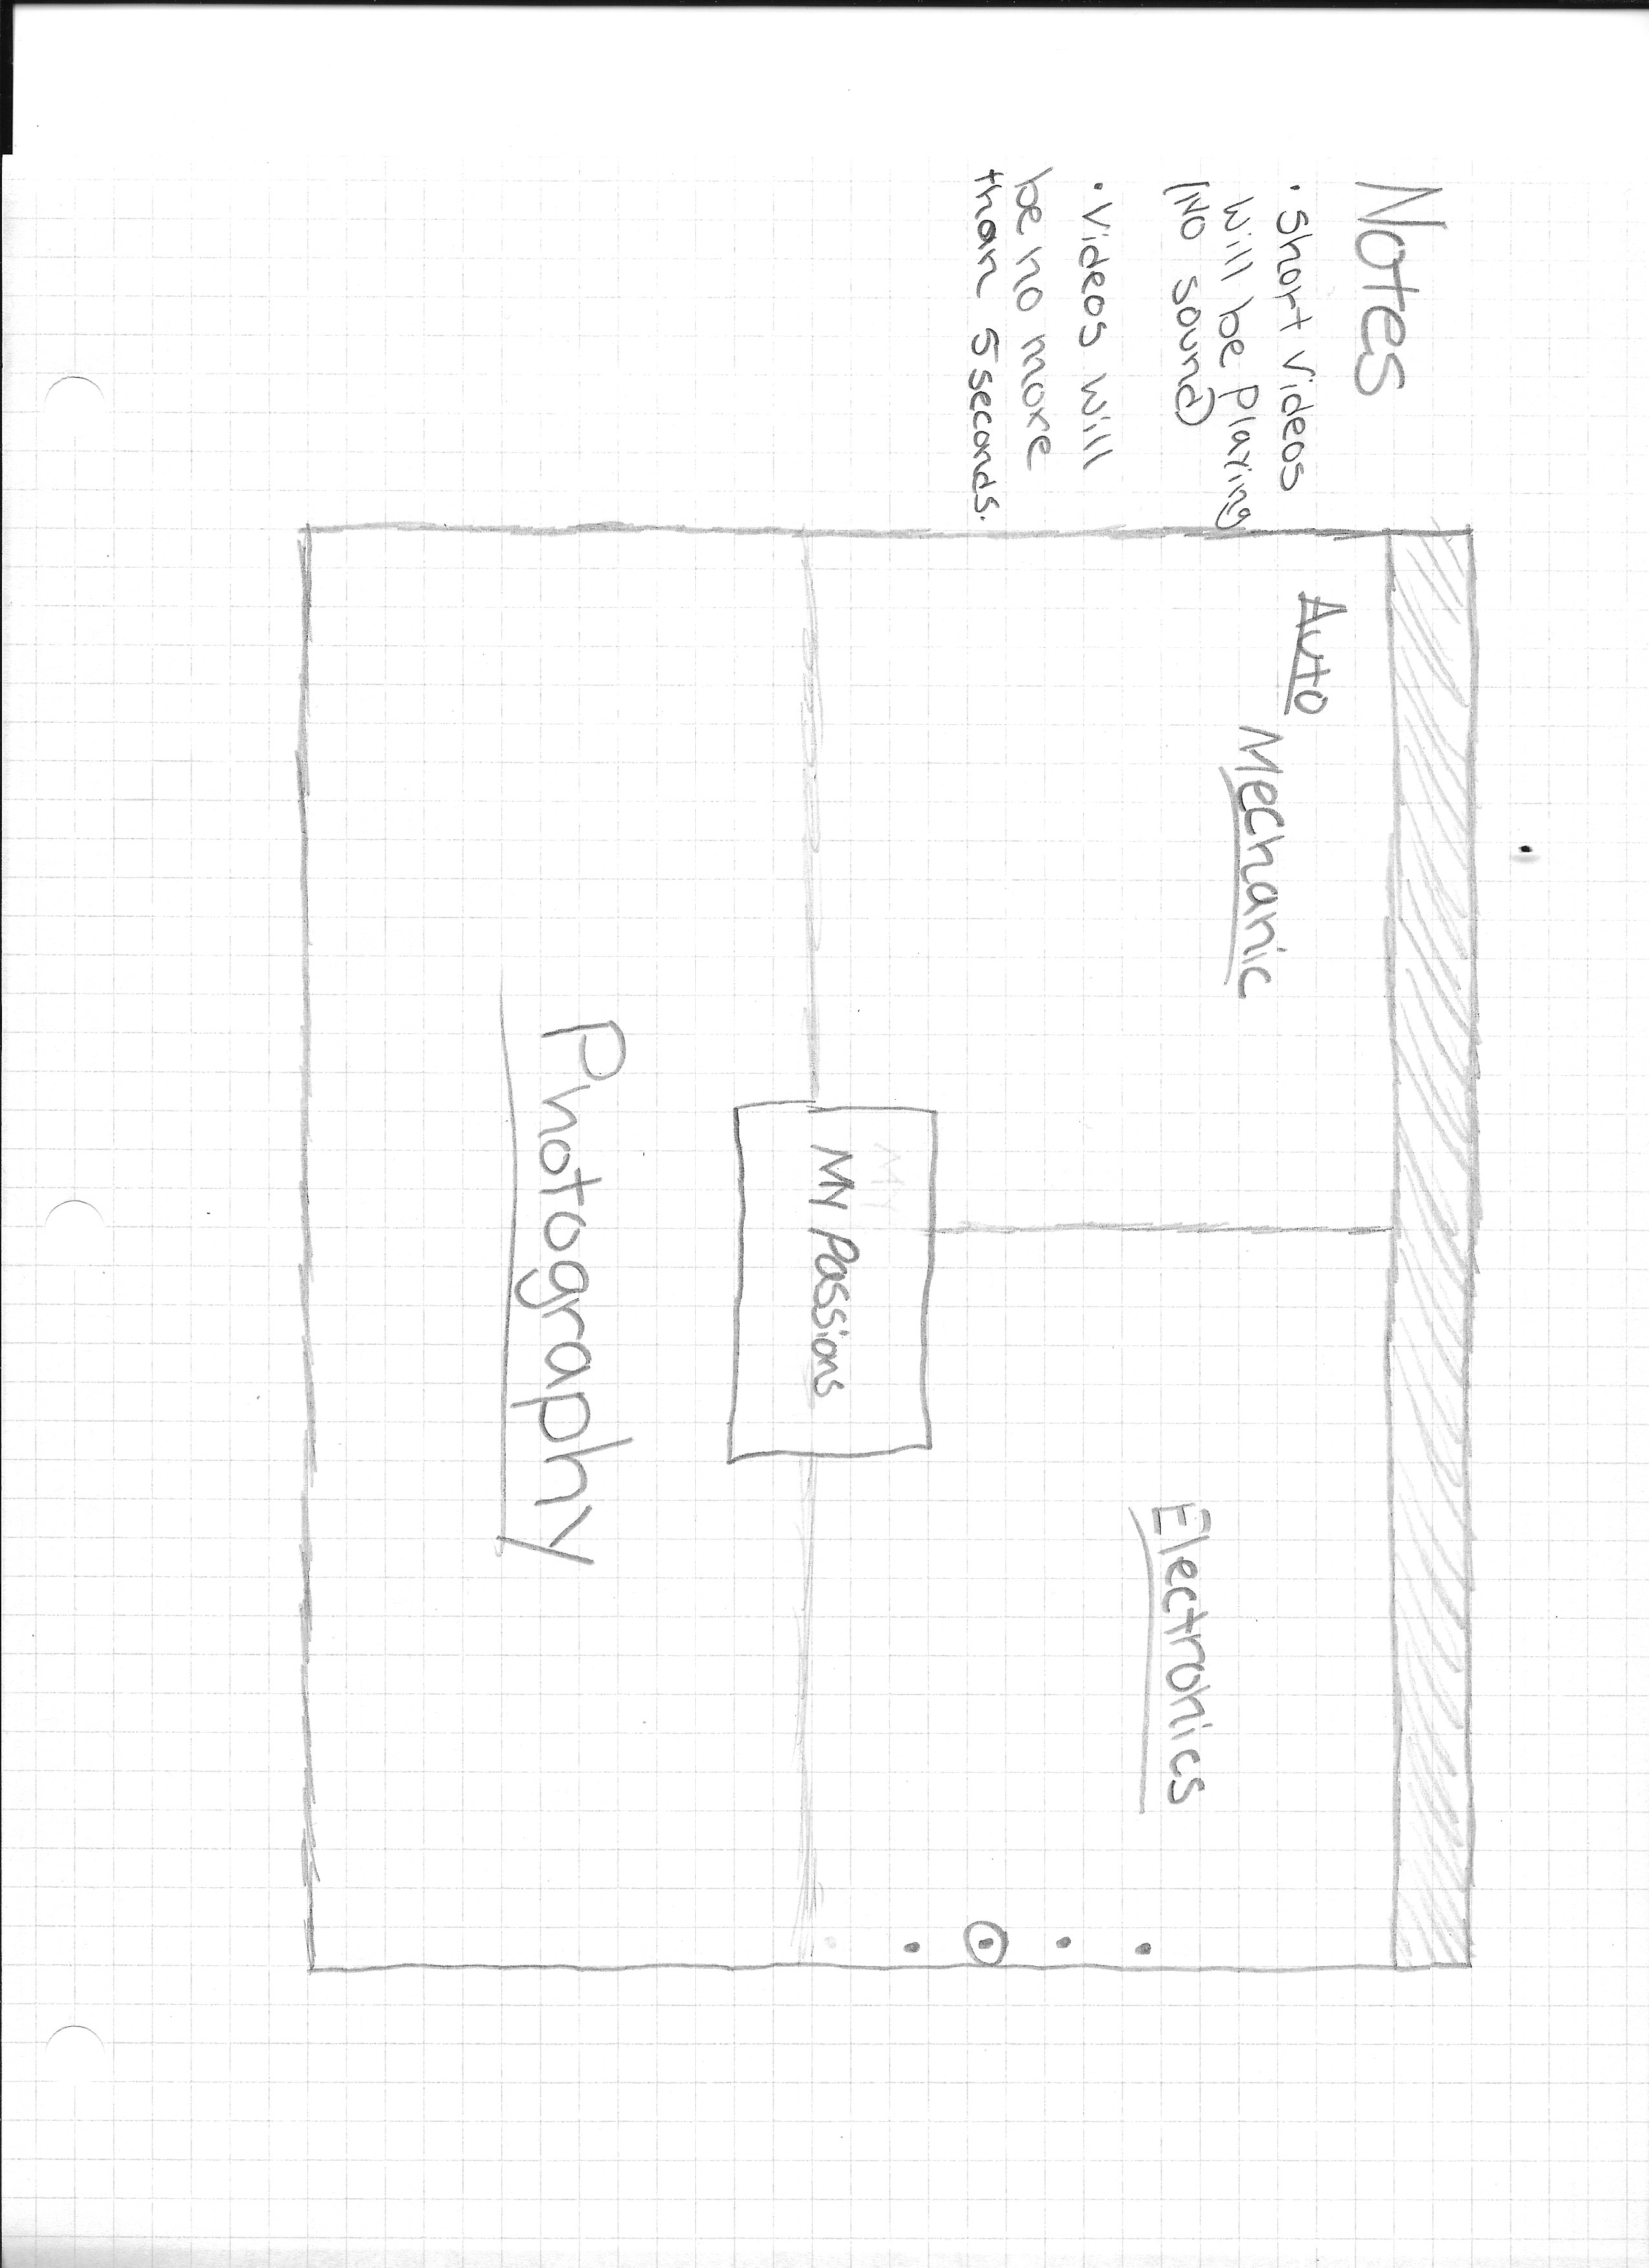 Notes
• Short Videos
Will be Playing
(No sound)
• Videos Will
be no more
than 5 seconds.
Auto
Mechanic
Electronics
My
My Passions
Photography